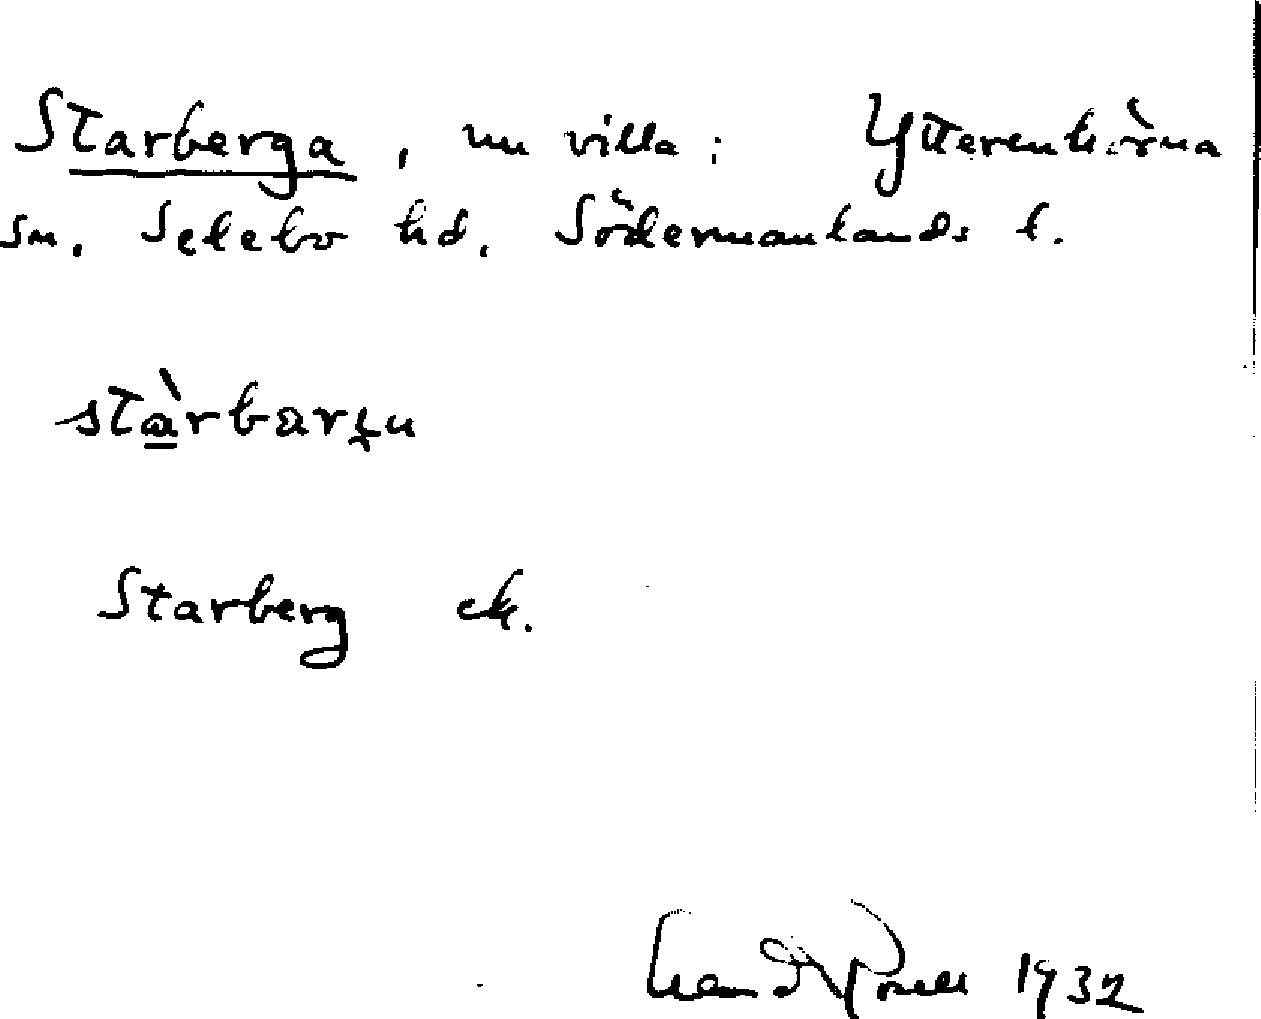 Starberga, nu villa; Ytterenhörna
sn. Selebo hd. Södermanlands l.
stàrbarɡu
Starberg ek.
1932